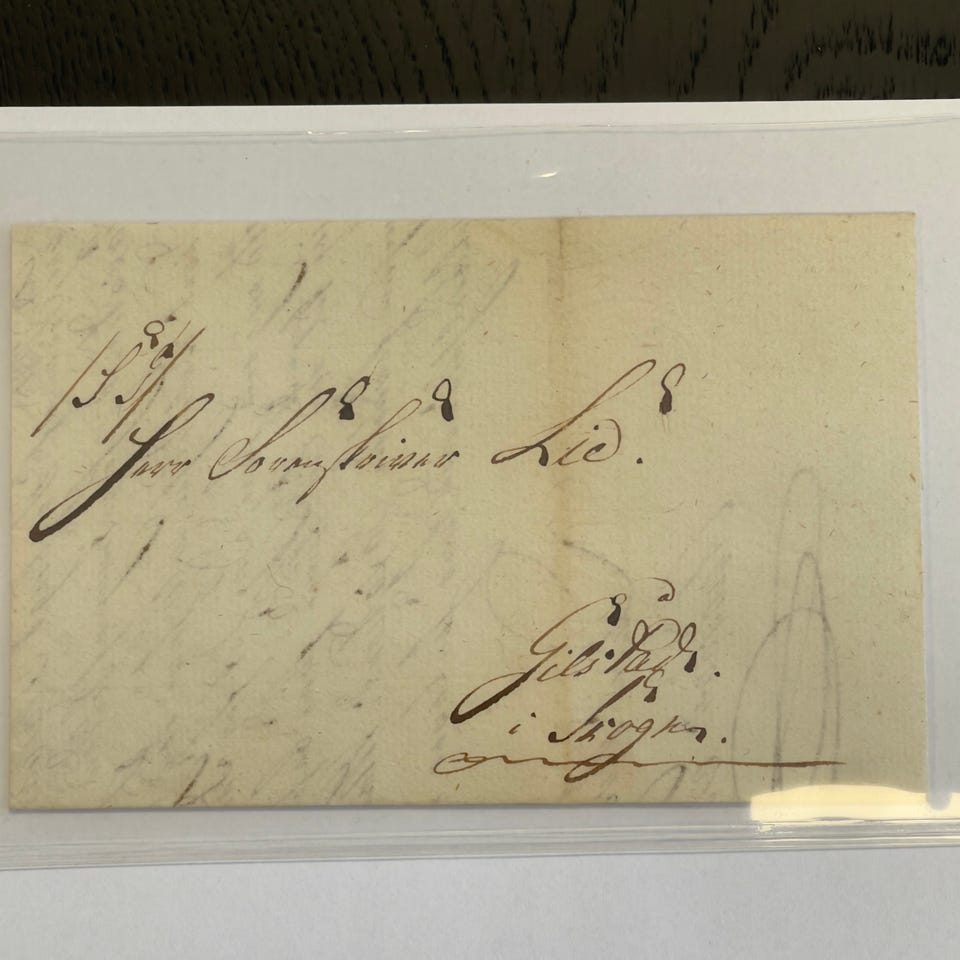 Herr Sorenskriver Lie.
Gilstad.
i Skogn.